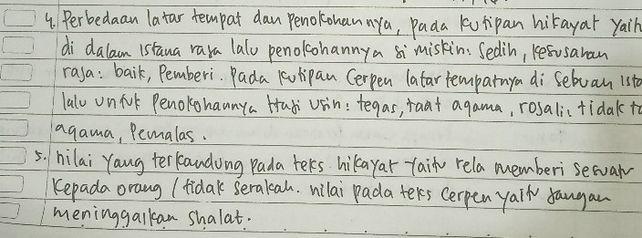 4. Perbedaan latar tempat dan penokohannya, pada kutipan hikayat yaitu
di dalam istana raja lalu penokohannya si miskin: sedih, kesusahan
raja: baik, Pemberi. Pada kutipan Cerpen latar tempatnya di sebuah
lalu untuk Penokohannya Haji Usin: tegas, taat agama, rosali: tidak
agama, Pemalas.
5. nilai yang terkandung pada teks hikayat yaitu rela memberi sesuatu
kepada orang / tidak serakah. nilai pada teks Cerpen yaitu jangan
meninggalkan shalat.